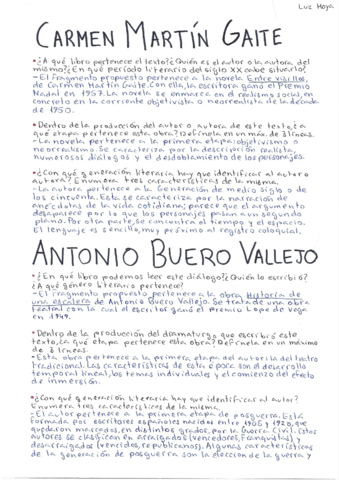 Luz Moya
CARMEN MARTÍN GAITE
•¿A qué libro pertenece el texto?¿Quién es el autor o la autora del
mismo?¿En qué período literario del siglo XX cabe situarlo?
-El fragmento propuesto pertenece a la novela Entre visillos,
de Carmen Martín Gaite. Con ella, la escritora ganó el Premio
Nadal en 1957. La novela se enmarca en el realismo social, en
concreto en la corriente objetivista o neorrealista de la década
de 1950.
•Dentro de la producción del autor o autora de este texto, ¿a
qué etapa pertenece esta obra? Defínela en un máx. de 3 líneas.
-La novela pertenece a la primera etapa: objetivismo o
neorrealismo. Se caracteriza por la descripción realista,
numerosos diálogos y el desdoblamiento de los personajes.
•¿Con qué generación literaria hay que identificar al autor o
autora? Enumora tres características de la misma.
-La autora pertenece a la Generación de medio siglo o de
los cincuenta. Esta se caracteriza por la narración de
anécdotas de la vida cotidiana; parece que el argumento
desaparece por lo que los personajes pasan a un segundo
plano. Por otra parte, se concentra el tiempo y el espacio.
El lenguaje es sencillo, muy próximo al registro coloquial.
ANTONIO BUERO VALLEJO
•¿En qué libro podemos leer este diálogo?¿Quién lo escribió?
¿A qué género literario pertenece?
-El fragmento propuesto pertenece a la obra Historia de
una escalera de Antonio Buero Vallejo. Se trata de una obra
teatral con la cual el escritor ganó el Premio Lope de Vega
en 1949.
•Dentro de la producción del dramaturgo que escribió este
texto, ¿a qué etapa pertenece esta obra? Defínela en un máximo
de 3 líneas.
-Esta obra pertenece a la primera etapa del autor: la del teatro
tradicional. Las características de esta época son el desarrollo
temporal lineal, los temas individuales y el comienzo del efecto
de inmersión.
•¿Con qué generación literaria hay que identificar al autor?
Enumera tres características de la misma.
-El autor pertenece a la primera etapa de posguerra. Está
formada por escritores españoles nacidos entre 1905 y 1920, que
quedaron marcados, en distintos grados, por la Guerra Civil. Estos
autores se clasifican en arraigados (vencedores, franquistas) y
desarraigados (vencidos, republicanos). Algunas características
de la generación de posguerra son la elección de la guerra y